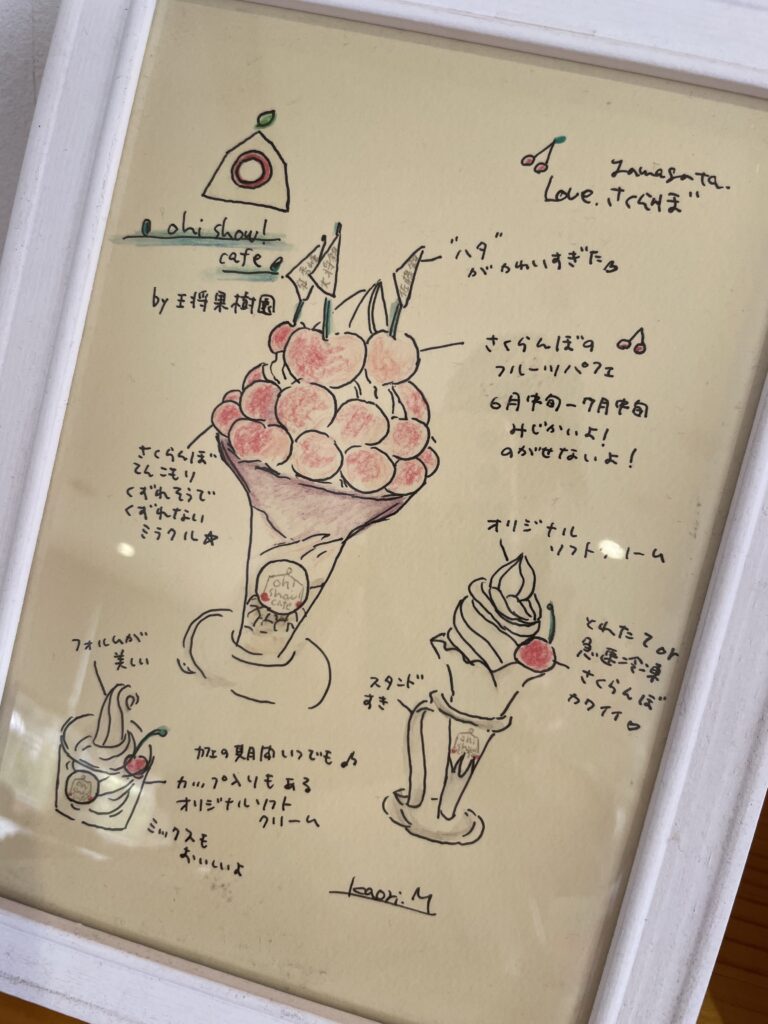 Yamagata.
Love.さくらんぼ
ohi show!
cafe
by 王将果樹園
"ハタ"
がかわいすぎた♪
さくらんぼの
フルーツパフェ
6月中旬−7月中旬
みじかいよ!
のがせないよ!
さくらんぼ
てんこもり
くずれそうで
くずれない
ミラクル☆
ohi
show!
cafe
オリジナル
ソフトクリーム
とれたて or
急速冷凍
さくらんぼ
カワイイ♡
スタンド
すき
フォルムが
美しい
カフェの期間いつでも♪
カップ入りもある
オリジナルソフト
クリーム
ミックスも
おいしいよ
Kaori.M